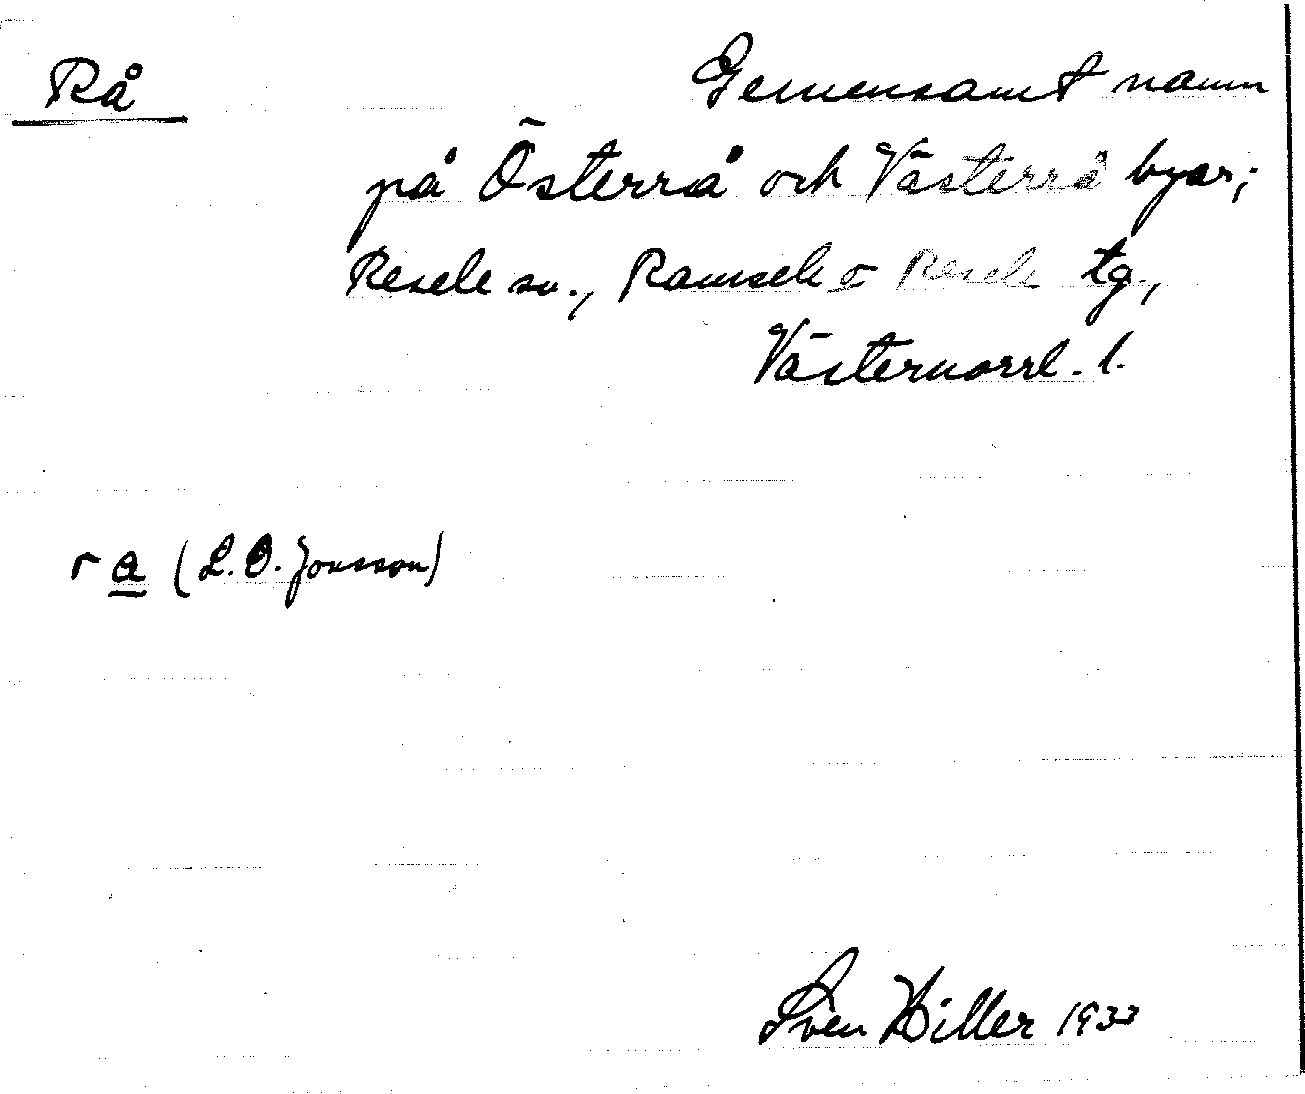 Rå
Gemensamt namn
på Österrå och Västerrå byar;
Resele sn., Ramsele o Resele tg.,
Västernorrl. l.
r a (L. O. Jonsson)
Sven Hiller 1933